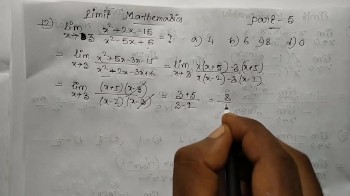 Limit Mathematics part-5
12) lim x→3 x²+2x-15 / x²-5x+6 = ? a) 4 b) 6 c) 8 d) 0
= lim x→3 x²+5x-3x-15 / x²-2x-3x+6 = lim x→3 x(x+5)-3(x+5) / x(x-2)-3(x-2)
= lim x→3 (x+5)(x-3) / (x-2)(x-3) = 3+5 / 3-2 = 8 / 1